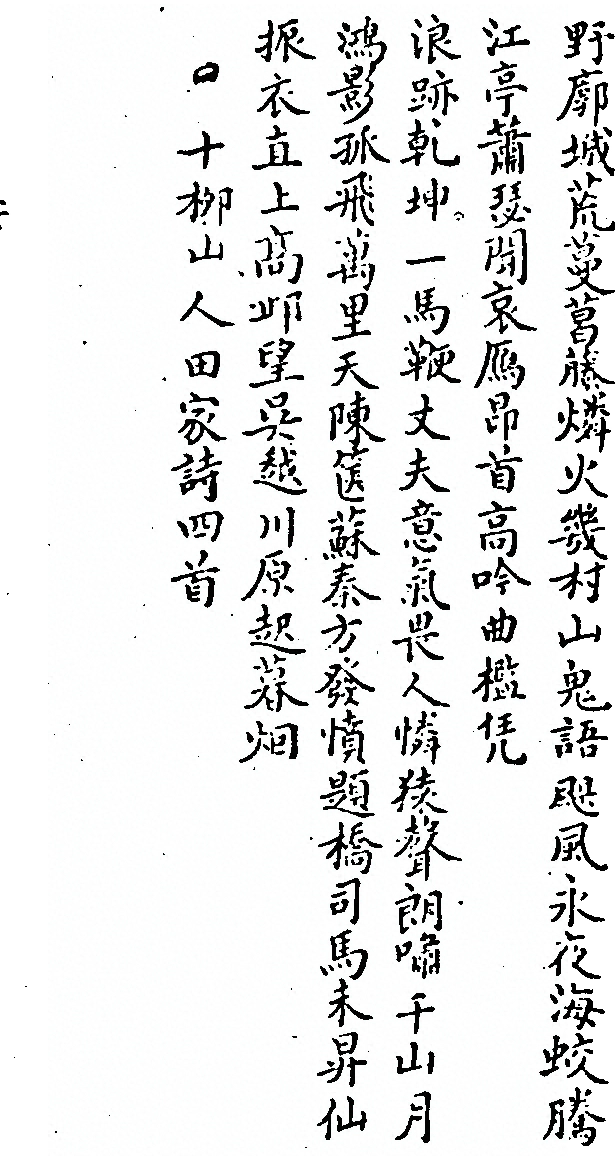 野廓城荒蔓葛藤燐火幾村山鬼語颶風永夜海蛟騰
江亭蕭瑟聞哀鴈昂首高吟曲檻凭
浪跡乾坤一馬鞭丈夫意氣畏人憐猿聲朗嘯千山月
鴻影孤飛萬里天陳篋蘇秦方發憤題橋司馬未昇仙
振衣直上高邱望吳越川原起暮烟
十柳山人田家詩四首